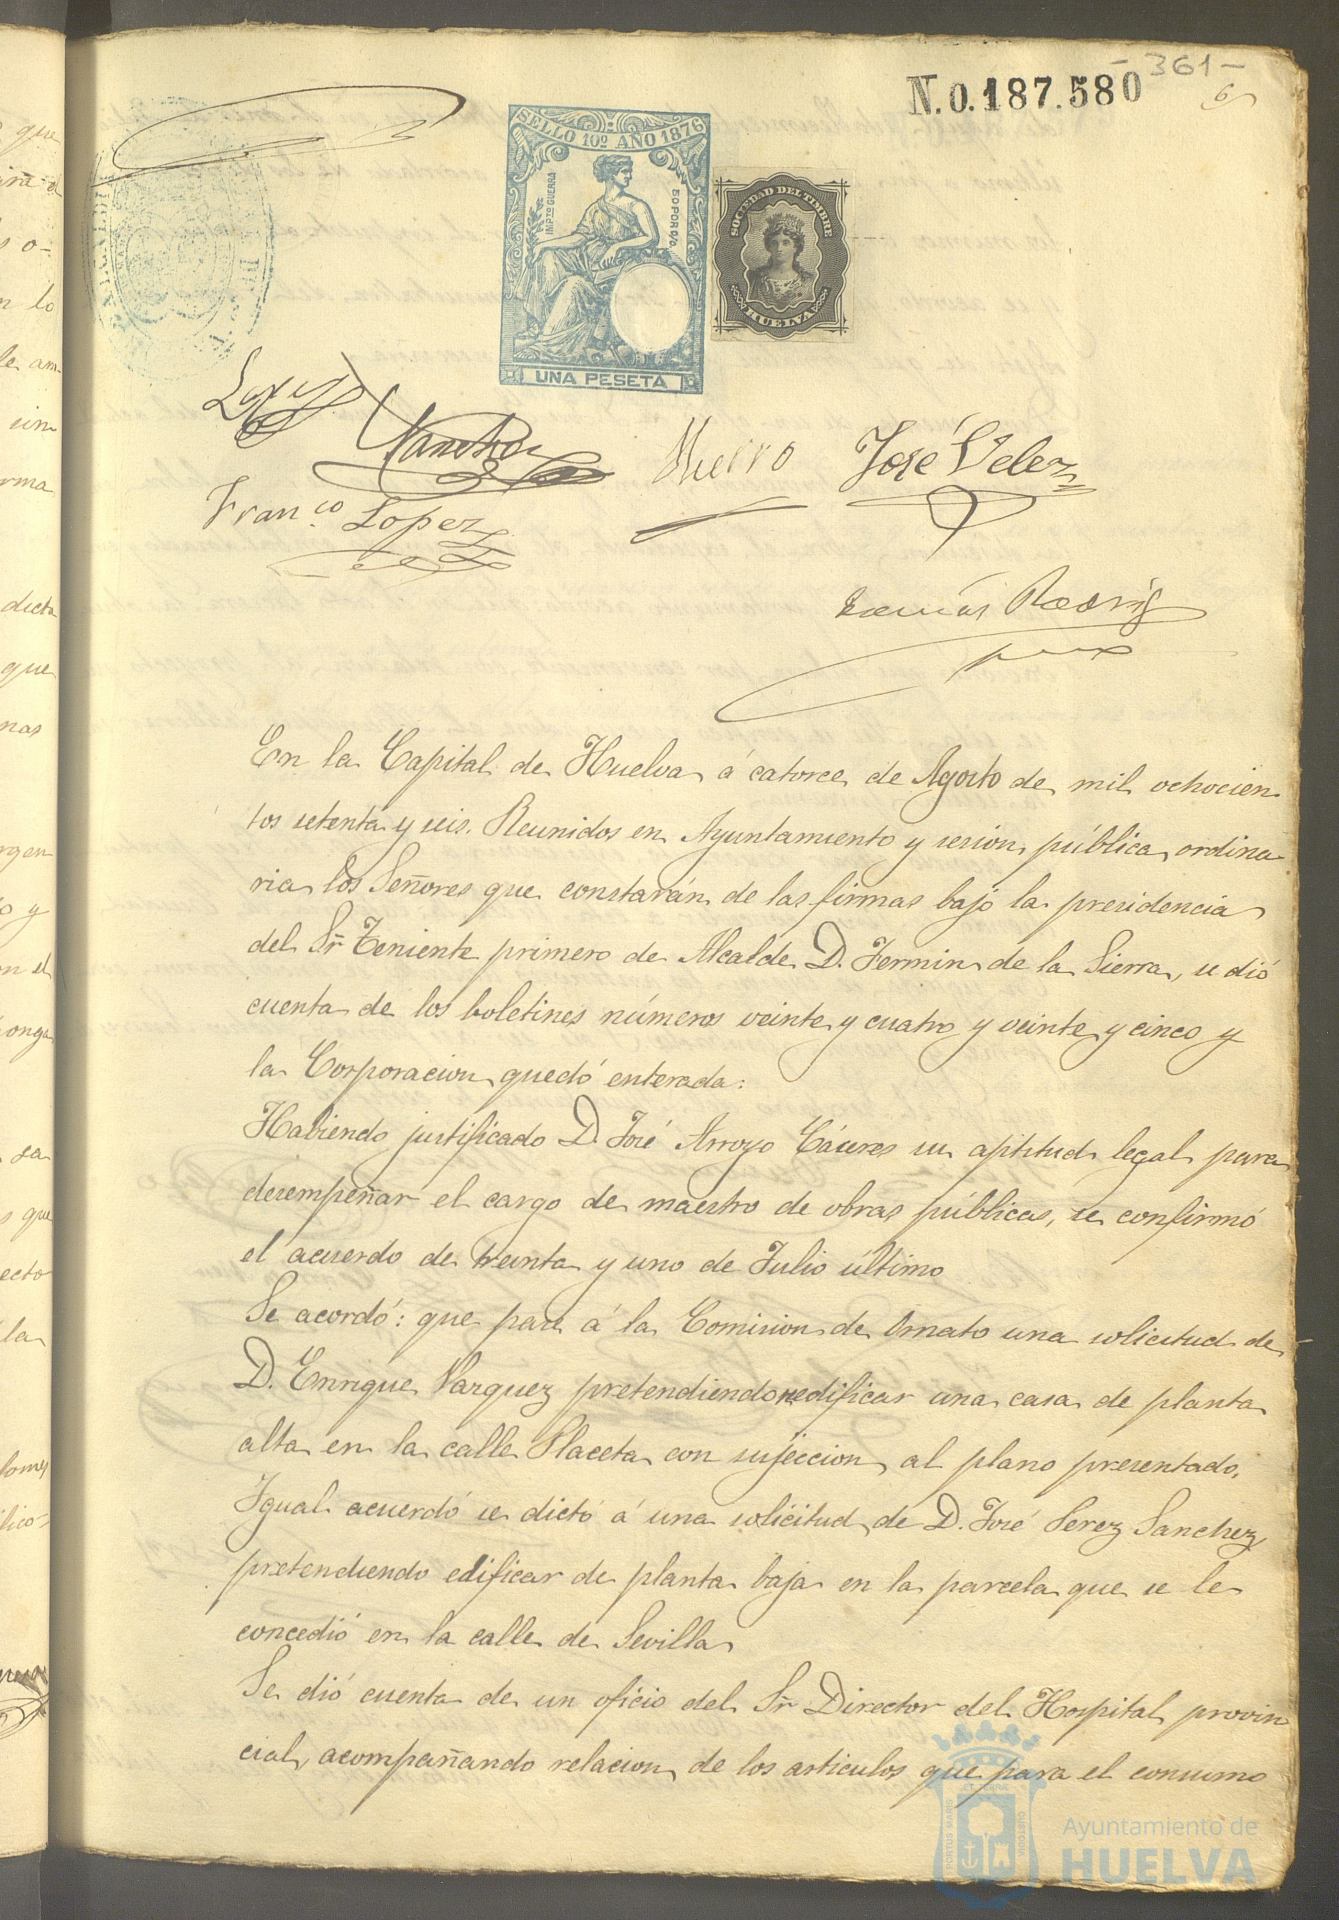 -361-
6
N.0.187.580
SELLO 10º AÑO 1876
IMPTO GUERRA
50 POR 0/0
UNA PESETA
SOCIEDAD DEL TIMBRE
HUELVA
Sanchez
José Velez
Franco Lopez
En la Capital de Huelva á catorce de Agosto de mil ochocien
tos setenta y seis. Reunidos en Ayuntamiento y sesion pública ordina
ria los Señores que constarán de las firmas bajo la presidencia
del Sr Teniente primero de Alcalde D. Fermin de la Sierra, se dió
cuenta de los boletines números veinte y cuatro y veinte y cinco y
la Corporacion quedó enterada:
Habiendo justificado D. José Arroyo Cáceres su aptitud legal para
desempeñar el cargo de maestro de obras públicas, se confirmó
el acuerdo de treinta y uno de Julio último
Se acordó: que pase á la Comision de Ornato una solicitud de
D. Enrique Vazquez pretendiendo reedificar una casa de planta
alta en la calle Placeta con sujeccion al plano presentado.
Igual acuerdó se dictó á una solicitud de D. José Perez Sanchez
pretendiendo edificar de planta baja en la parcela que se le
concedió en la calle de Sevilla
Se dió cuenta de un oficio del Sr Director del Hospital provin
cial, acompañando relacion de los articulos que para el consumo
Ayuntamiento de
HUELVA